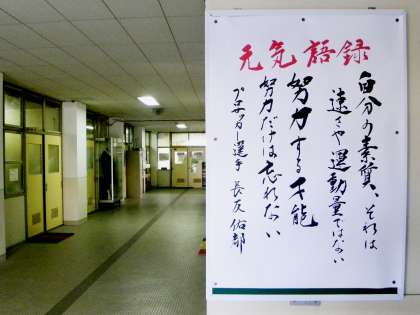 元気語録
自分の素質、それは
速さや運動量ではない
努力する才能
努力だけは忘れない
プロサッカー選手 長友佑都